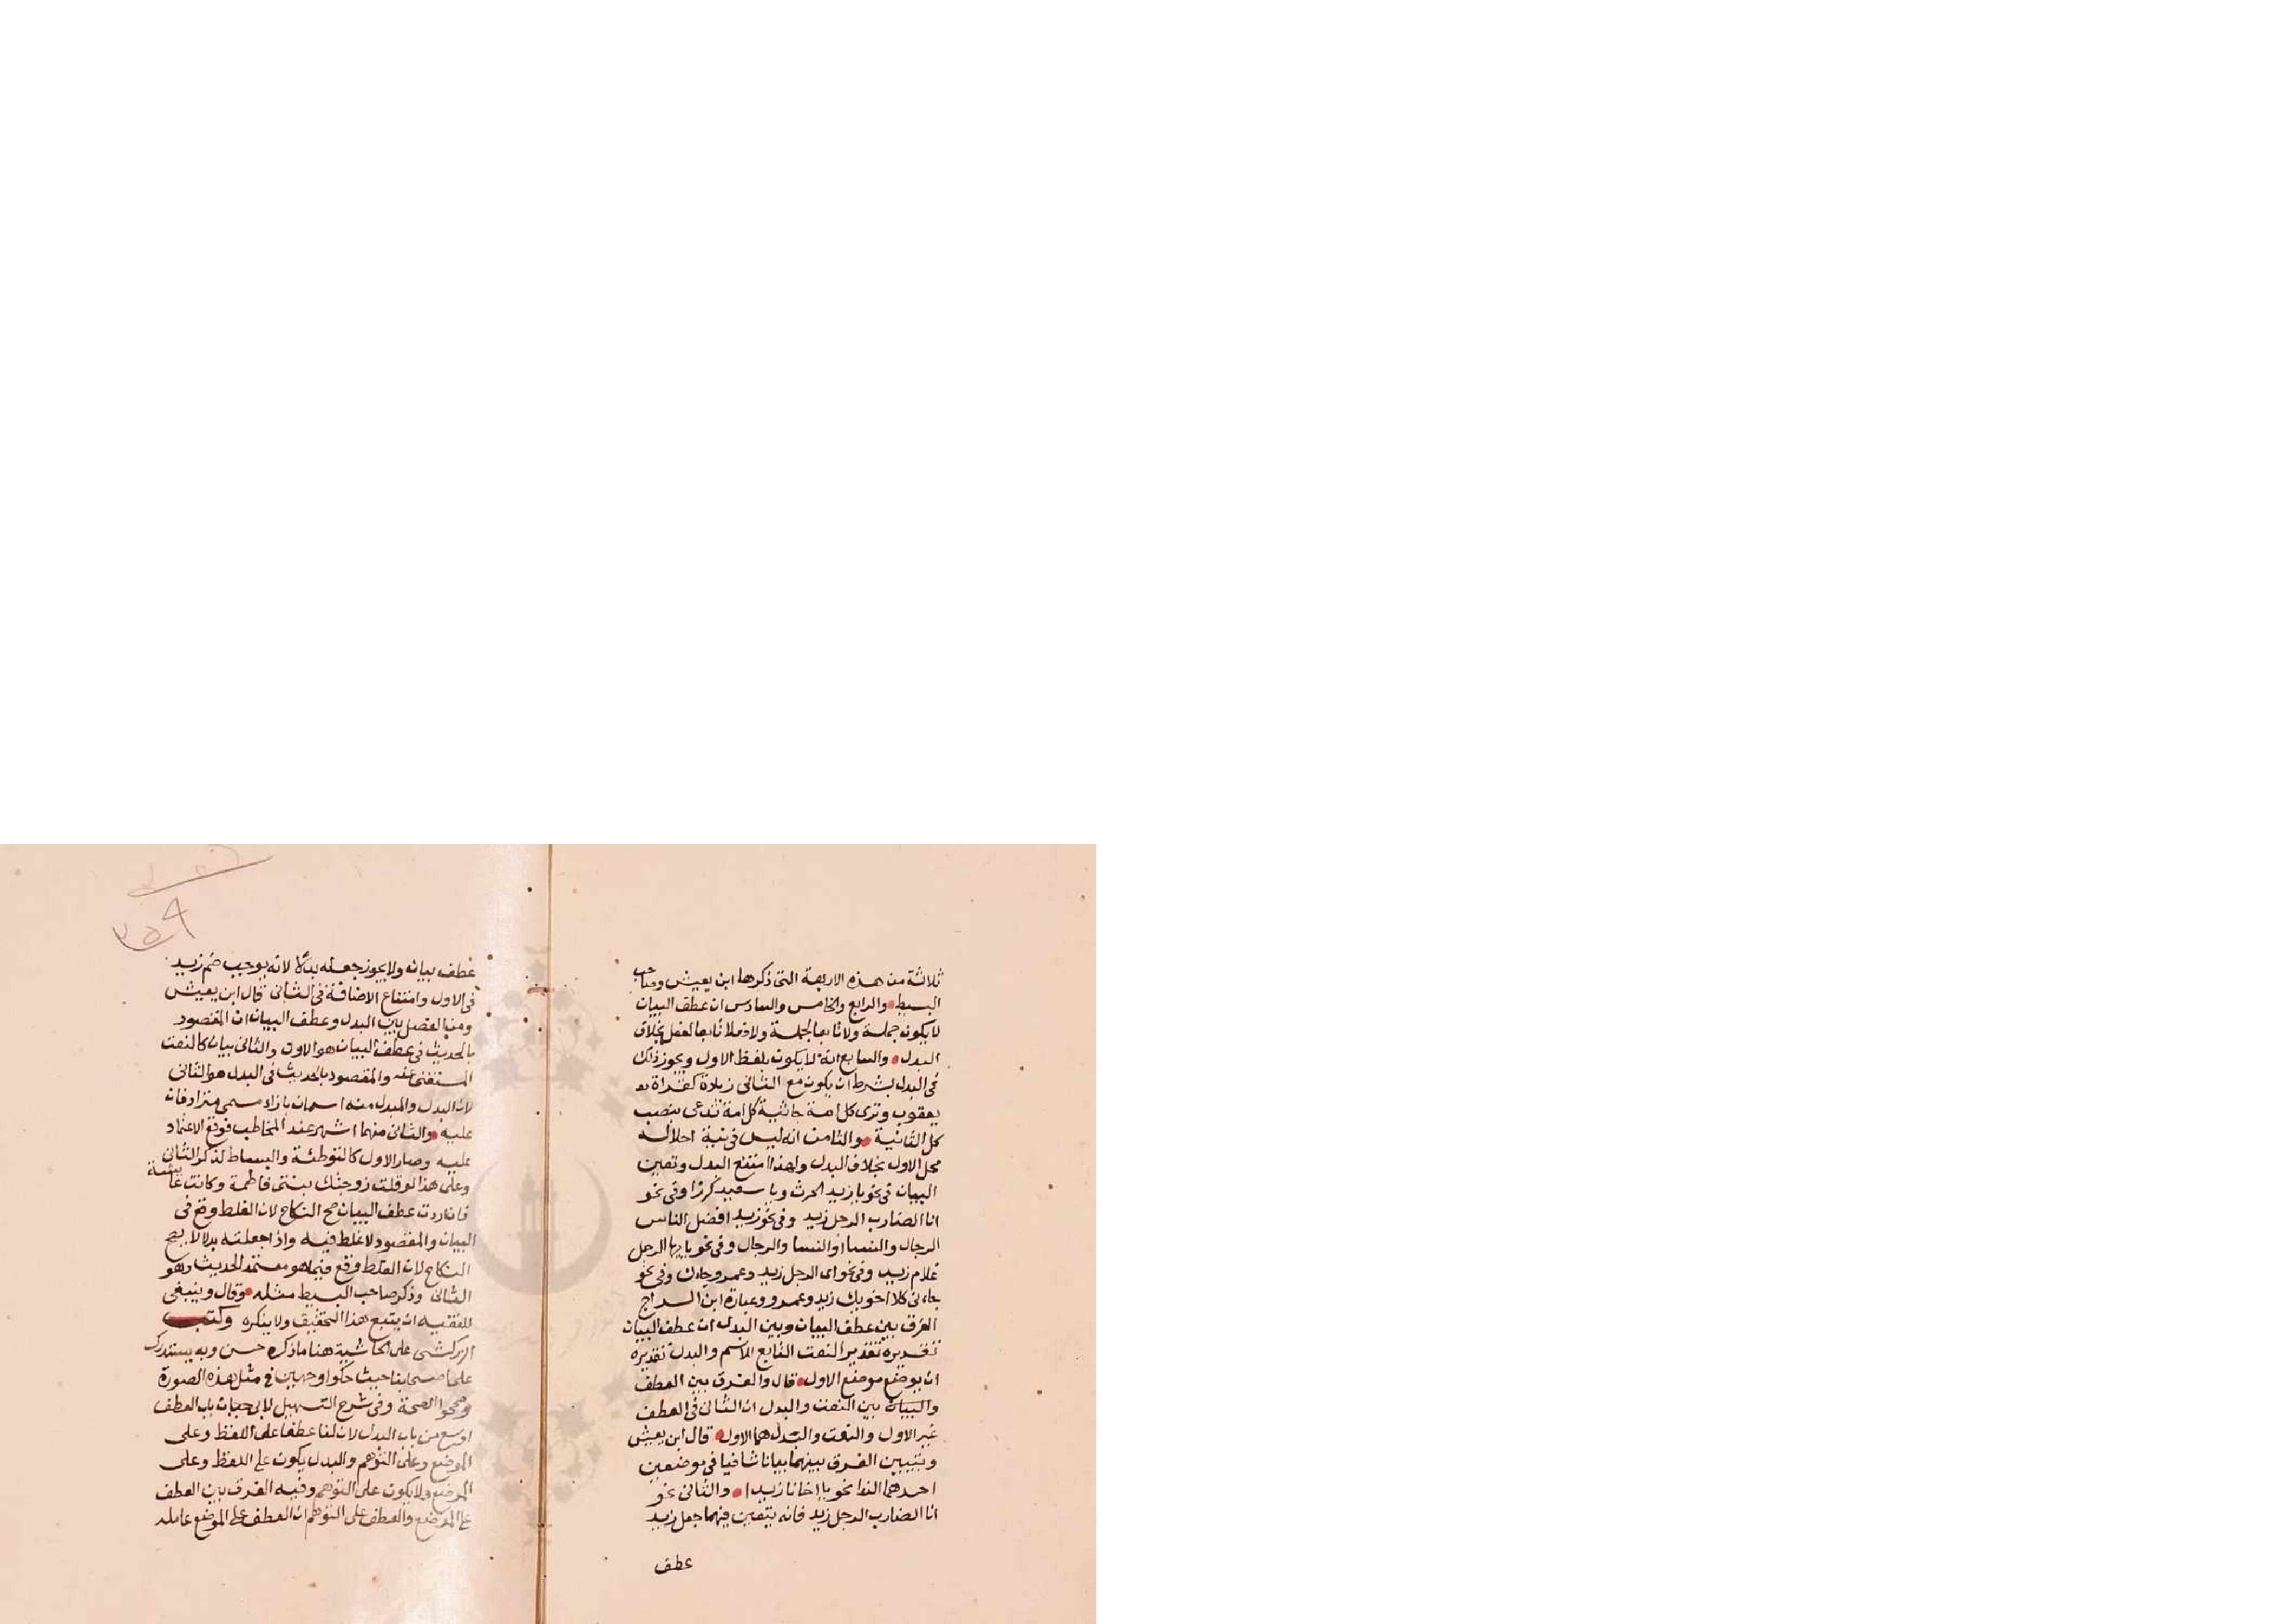 ثلاثة من هذه الاربعة التى ذكرها ابن يعيش وصاحب
البسيط والرابع والخامس والسادس ان عطف البيان
لا يكون جملة ولا تابعا لجملة ولا فعلا تابعا لفعل بخلاف
البدل والسابع انه لا يكون بلفظ الاول ويجوز ذلك
فى البدل بشرط ان يكون مع الثانى زيادة كقراة
يعقوب وترى كل امة جاثية كل امة تدعى بنصب
كل الثانية والثامن انه ليس فى نية احلاله
محل الاول بخلاف البدل ولهذا امتنع البدل وتعين
البيان فى نحو يا زيد الحرث ويا سعيد كرزا وفى نحو
انا الضارب الرجل زيد وفى نحو زيد افضل الناس
الرجال والنسا او النسا والرجال وفى نحو يا ايها الرجل
غلام زيد وفى نحو اى الرجل زيد وعمرو جاءك وفى نحو
جاءنى كلا اخويك زيد وعمرو وعبارة ابن السراج
الفرق بين عطف البيان وبين البدل ان عطف البيان
تقديره تقدير النعت التابع للاسم والبدل تقديره
ان يوضع موضع الاول قال والفرق بين العطف
والبيان بين النعت والبدل ان الثانى فى العطف
غير الاول والنعت والبدل هما الاول قال ابن يعيش
ويتبين الفرق بينهما بيانا شافيا فى موضعين
احدهما الندا نحو يا اخانا زيدا والثانى نحو
انا الضارب الرجل زيد فانه يتعين فيهما جعل زيد
عطف
عطف بيان ولا يجوز جعله بدلا لانه يوجب ضم زيد
فى الاول وامتناع الاضافة فى الثانى قال ابن يعيش
ومن الفصل بين البدل وعطف البيان ان المقصود
بالحديث فى عطف البيان هو الاول والثانى بيان كالنعت
المستغنى عنه والمقصود بالحديث فى البدل هو الثانى
لان البدل والمبدل منه اسمان بازاء مسمى مترادفان
عليه والثانى منهما اشهر عند المخاطب فوقع الاعتماد
عليه وصار الاول كالتوطئة والبساط لذكر الثانى
وعلى هذا لو قلت زوجتك بنتى فاطمة وكانت عائشة
فان اردت عطف البيان صح النكاح لان الغلط وقع فى
البيان والمقصود لا غلط فيه واذا جعلته بدلا لا يصح
النكاح لان الغلط وقع فيما هو معتمد الحديث وهو
الثانى وذكر صاحب البسيط مثله وقال وينبغى
للفقيه ان يتبع هذا التحقيق ولا ينكره وكتب
الزركشى على الحاشية هنا ما ذكره حسن وبه يستدرك
على اصحابنا حيث حكوا وجهين فى مثل هذه الصورة
وصححوا الصحة وفى شرح التسهيل لابى حيان باب العطف
اوسع من باب البدل لان لنا عطفا على اللفظ وعلى
الموضع وعلى التوهم والبدل يكون على اللفظ وعلى
الموضع ولا يكون على التوهم وفيه الفرق بين العطف
على الموضع والعطف على التوهم ان العطف على الموضع عامله